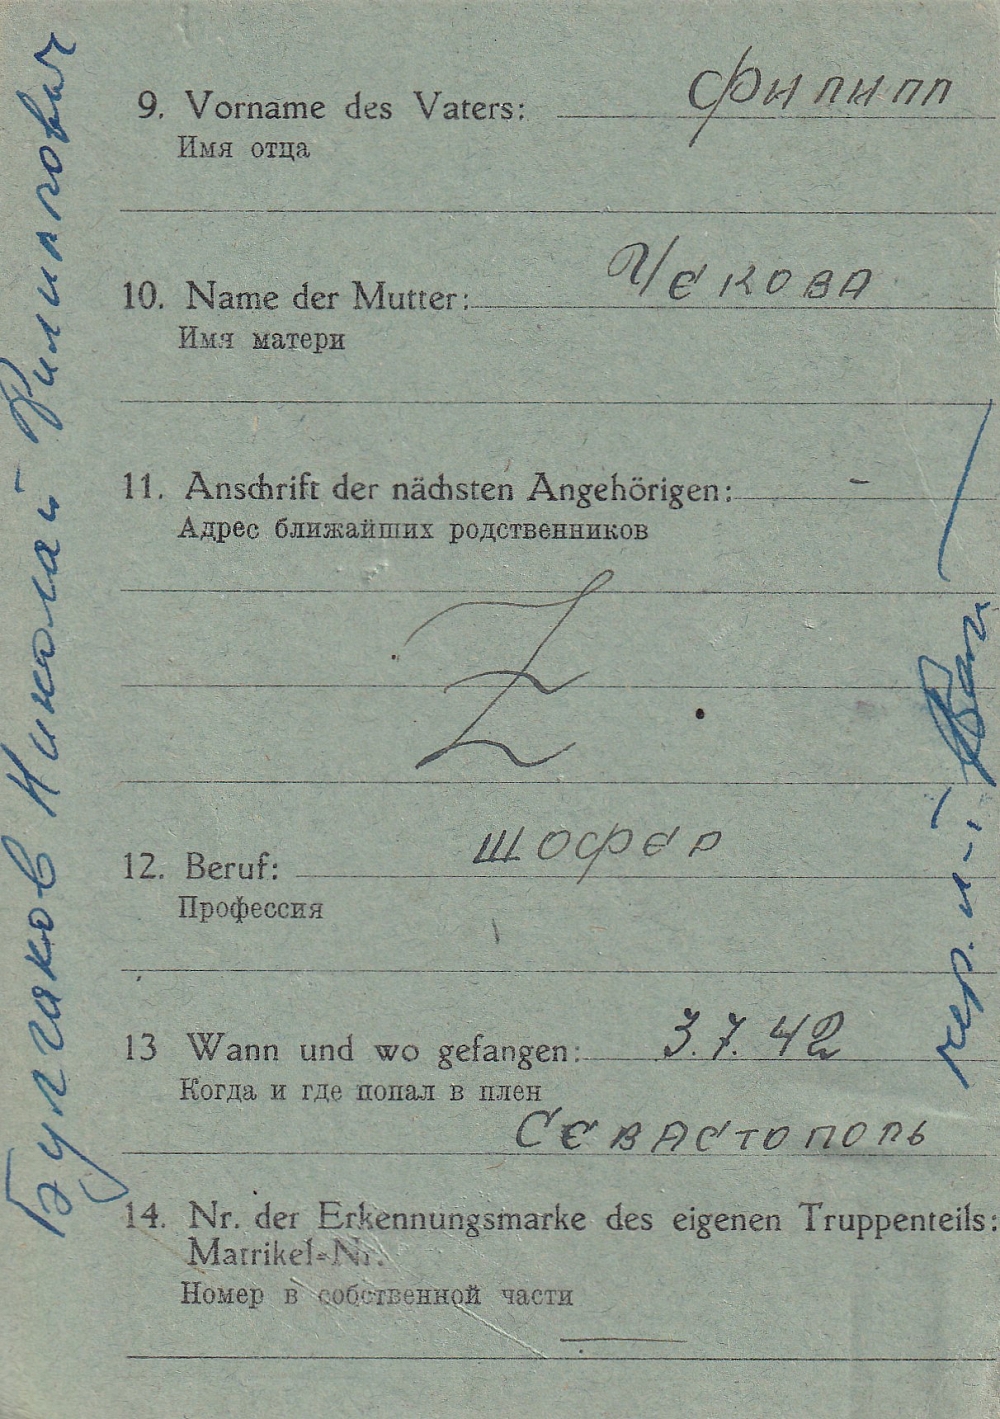 Булгаков Николай Филиппович
9. Vorname des Vaters: Филипп
Имя отца
10. Name der Mutter: Чекова
Имя матери
11. Anschrift der nächsten Angehörigen: -
Адрес ближайших родственников
12. Beruf: шофер
Профессия
13 Wann und wo gefangen: 3.7.42
Когда и где попал в плен
Севастополь
14. Nr. der Erkennungsmarke des eigenen Truppenteils:
Matrikel-Nr.
Номер в собственной части
пер. л-й